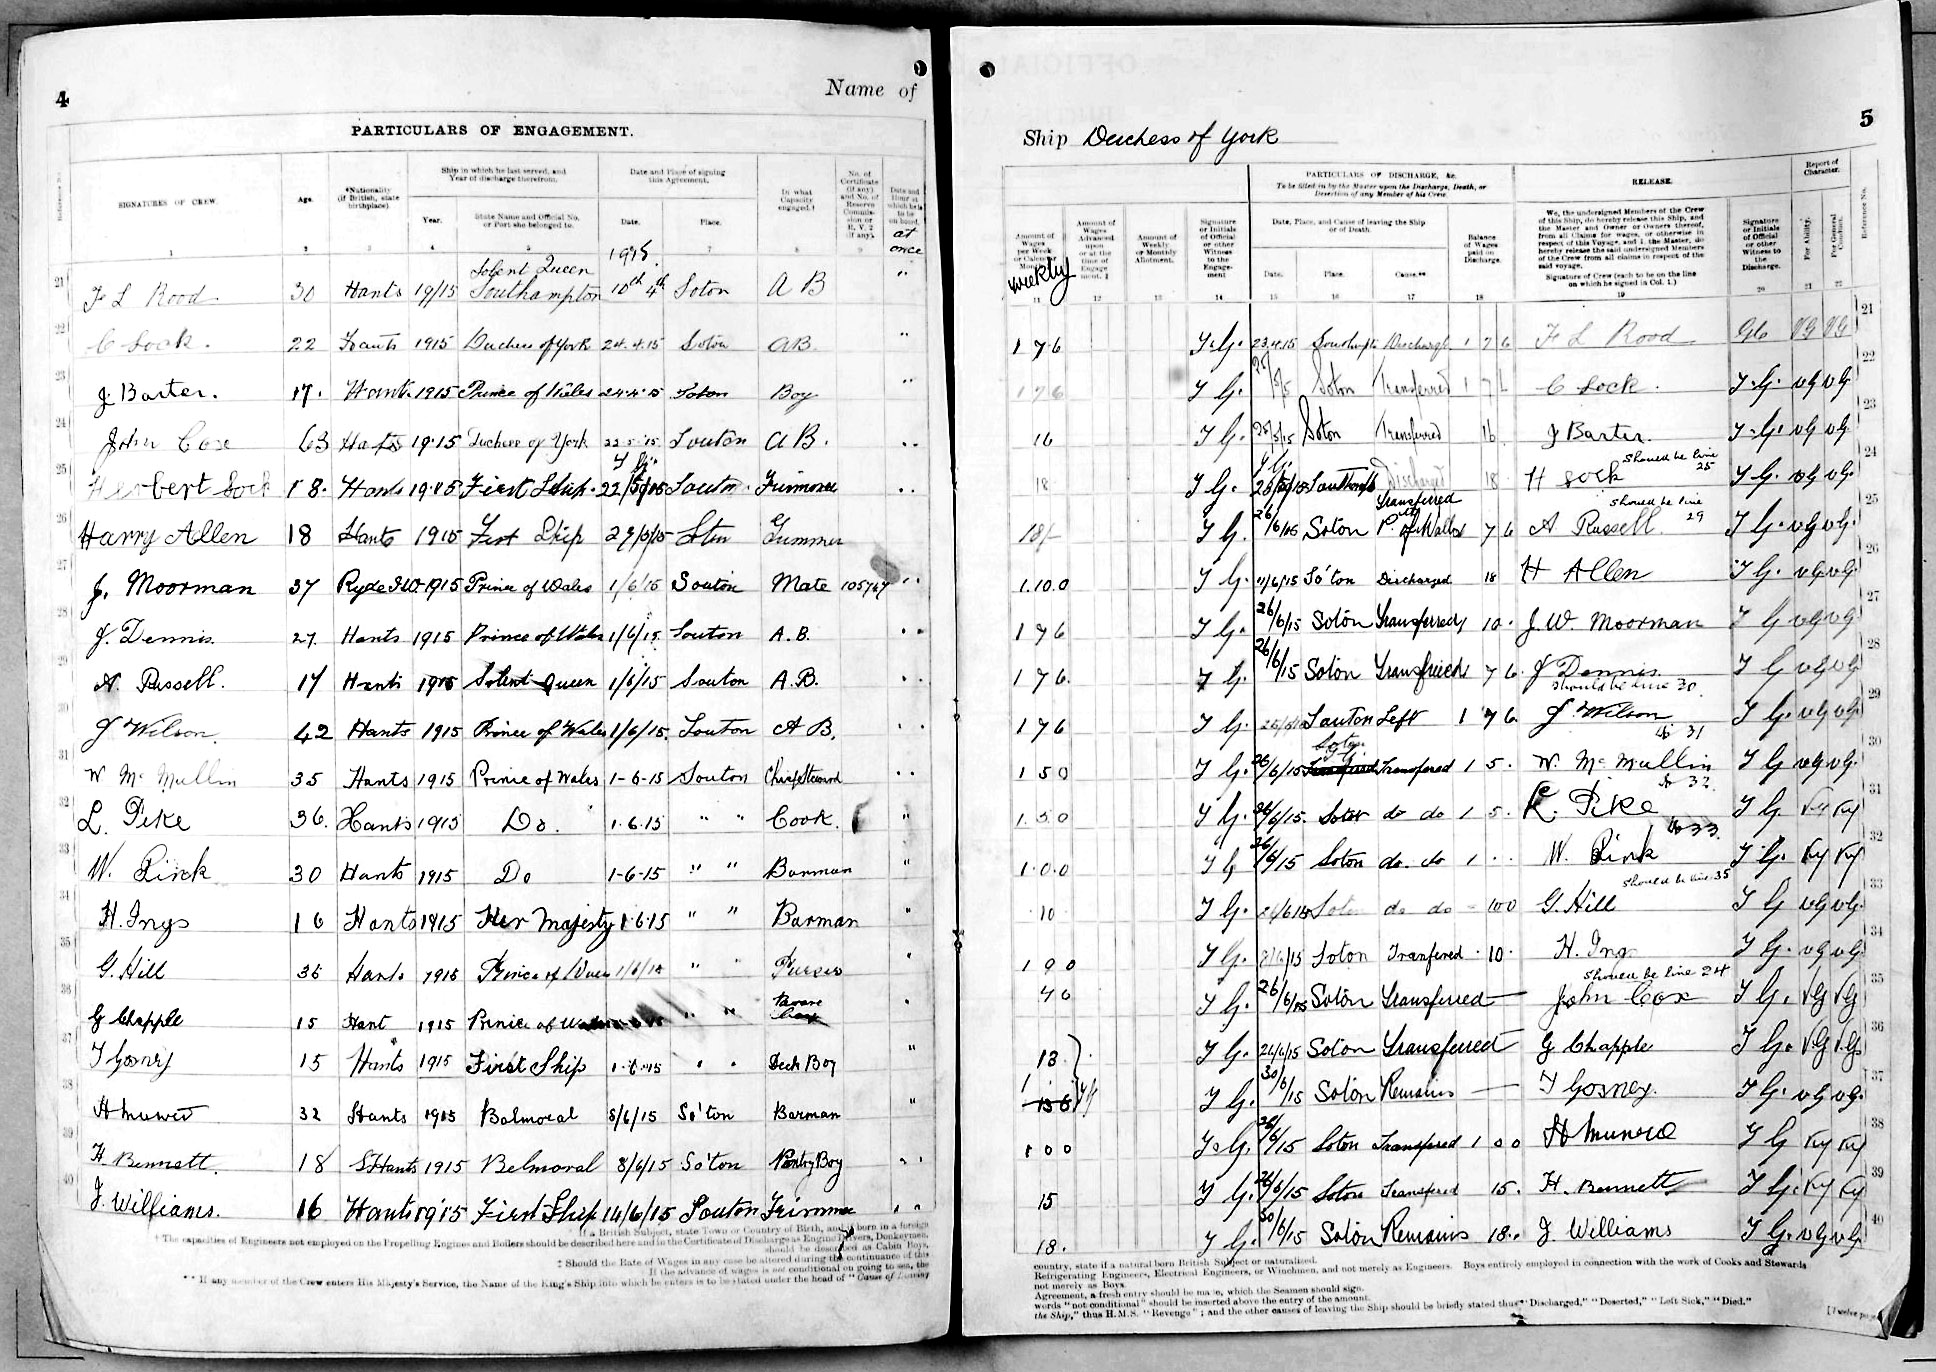 4
Name of
PARTICULARS OF ENGAGEMENT.
Reference No.
SIGNATURES OF CREW.
Age.
*Nationality (if British, state birthplace).
Ship in which he last served, and Year of discharge therefrom.
Year.
State Name and Official No. or Port she belonged to.
Date and Place of signing this Agreement.
Date.
Place.
In what Capacity engaged.†
No. of Certificate (if any) and No. of Reserve Commission or R.V. 2 (if any).
Date and Hour at which he is to be on board.
1 2 3 4 5 6 7 8
1915. at once
21 F L Rood 30 Hants 19/15 Solent Queen Southampton 10th 4th Soton A B "
22 C Sock. 22 Hants 1915 Duchess of York 24.4.15 Soton AB. "
23 J. Barter. 17. Hants 1915 Prince of Wales 24.4.15 Soton Boy "
24 John Cox 63 Hants 1915 Duchess of York 22.5.15 Souton A B. "
25 Herbert Sock 18. Hants 1915 First Ship. 22/5/15 Souton. "
26 Harry Allen 18 Hants 1915 First Ship 29/5/15
27 J. Moorman 37 Ryde I.W. 1915 Prince of Wales 1/6/15 Souton Mate 105767 "
28 J. Dennis. 27. Hants 1915 Prince of Wales 1/6/15. Souton A.B. "
29 A. Russell. 17 Hants 1915 Solent Queen 1/6/15 Souton A.B. "
30 J Wilson. 42 Hants 1915 Prince of Wales 1/6/15. Souton A B. "
31 W McMullin 35 Hants 1915 Prince of Wales 1-6-15 Souton Chief Steward "
32 L. Pike 36. Hants 1915 Do. 1.6.15 " " Cook. "
33 W. Pink 30 Hants 1915 Do 1-6-15 " " Barman "
34 H. Ings 16 Hants 1915 Her Majesty 1.6.15 " " Barman "
35 G. Hill 35 Hants 1915 Prince of Wales 1/6/15 " " Purser "
36 G Chapple 15 Hant 1915 Prince of Wales " " "
37 T Gosney 15 Hants 1915 First Ship 1.6.15 " " Deck Boy "
38 H Munro 32 Hants 1915 Balmoral 8/6/15 So'ton Barman "
39 H. Bennett. 18 S Hants 1915 Balmoral 8/6/15 So'ton Pantry Boy "
40 J. Williams. 16 Hants 1915 First Ship 14/6/15 Souton "
If a British Subject, state Town or Country of Birth, and if born in a foreign
† The capacities of Engineers not employed on the Propelling Engines and Boilers should be described here and in the Certificate of Discharge as Engine Drivers, Donkeymen,
should be described as Cabin Boys,
‡ Should the Rate of Wages in any case be altered during the continuance of this
If the advance of wages is not conditional on going to sea, the
** If any member of the Crew enters His Majesty's Service, the Name of the King's Ship into which he enters is to be stated under the head of "Cause of Leaving
5
Ship Duchess of York
Amount of Wages per Week or Calendar Month.
weekly
Amount of Wages Advanced upon or at the time of Engagement.‡
Amount of Weekly or Monthly Allotment.
Signature or Initials of Official or other Witness to the Engagement
PARTICULARS OF DISCHARGE, &c.
To be filled in by the Master upon the Discharge, Death, or Desertion of any Member of his Crew.
Date, Place, and Cause of leaving the Ship or of Death.
Date.
Place.
Cause.**
Balance of Wages paid on Discharge.
RELEASE.
We, the undersigned Members of the Crew of this Ship, do hereby release this Ship, and the Master and Owner or Owners thereof, from all Claims for wages, or otherwise in respect of this Voyage, and I, the Master, do hereby release the said undersigned Members of the Crew from all claims in respect of the said voyage.
Signature of Crew (each to be on the line on which he signed in Col. 1.)
Signature or Initials of Official or other Witness to the Discharge.
Report of Character.
For Ability.
For General Conduct.
Reference No.
11 12 13 14 15 16 17 18 19 20 21 22
1 7 6 T.G. 23.4.15 Discharged 1 7 6 F L Rood VG VG 21
1 7 6 T G. Soton Transferred 1 7 6 C Sock. T.G. VG VG 22
16 T G. Soton Transferred 16 J Barter. T.G. VG VG 23
should be line 25
18 T G. Discharged 18 H Sock T G. VG VG. 24
should be line 29
18/- T G. 26/6/15 Soton Transferred P. of Wales 7 6 A Russell. T G. VG VG. 25
1.10.0 T G. 11/6/15 So'ton Discharged 18 H Allen T G. VG VG. 26
1 7 6 T G. 26/6/15 Soton Transferred 10. J.W. Moorman T G VG VG. 27
1 7 6. T G. 26/6/15 Soton Transferred 7 6. J Dennis. T G VG VG 28
should be line 30.
1 7 6 T G. Souton Left 1 7 6. J Wilson T G. VG VG. 29
do 31
1 5 0 T G. 26/6/15 Soton Transfered 1 5. W. McMullin T G VG VG. 30
do 32.
1.5.0 T G. 26/6/15. Soton do do 1 5. L. Pike T G. VG VG 31
do 33.
1.0.0 T G 26/6/15 Soton do. do 1 .. W. Pink T G. VG VG 32
should be line 35
10 T G. 26/6/15 Soton do do - 10 0 G. Hill T G VG VG. 33
1 0 0 T G. Soton Transfered . 10. H. Ings T G. VG VG. 34
should be line 24
T G. 26/6/15 Soton Transferred — John Cox T G. VG VG 35
13. T G. 26/6/15 Soton Transferred — G Chapple T G. VG VG 36
T G. 30/6/15 Soton Remains — T Gosney. T G. VG VG. 37
1 0 0 T.G. 26/6/15 Soton Transfered 1 0 0 H Munro T G VG VG 38
15 T G. 26/6/15 Soton Transfered 15. H. Bennett T G. VG VG 39
18. T G. 30/6/15 Soton Remains 18.. J Williams T G. VG VG. 40
country, state if a natural born British Subject or naturalised.
Refrigerating Engineers, Electrical Engineers, or Winchmen, and not merely as Engineers. Boys entirely employed in connection with the work of Cooks and Stewards
not merely as Boys.
Agreement, a fresh entry should be made, which the Seamen should sign.
words "not conditional" should be inserted above the entry of the amount.
the Ship," thus H.M.S. "Revenge"; and the other causes of leaving the Ship should be briefly stated thus "Discharged," "Deserted," "Left Sick," "Died."